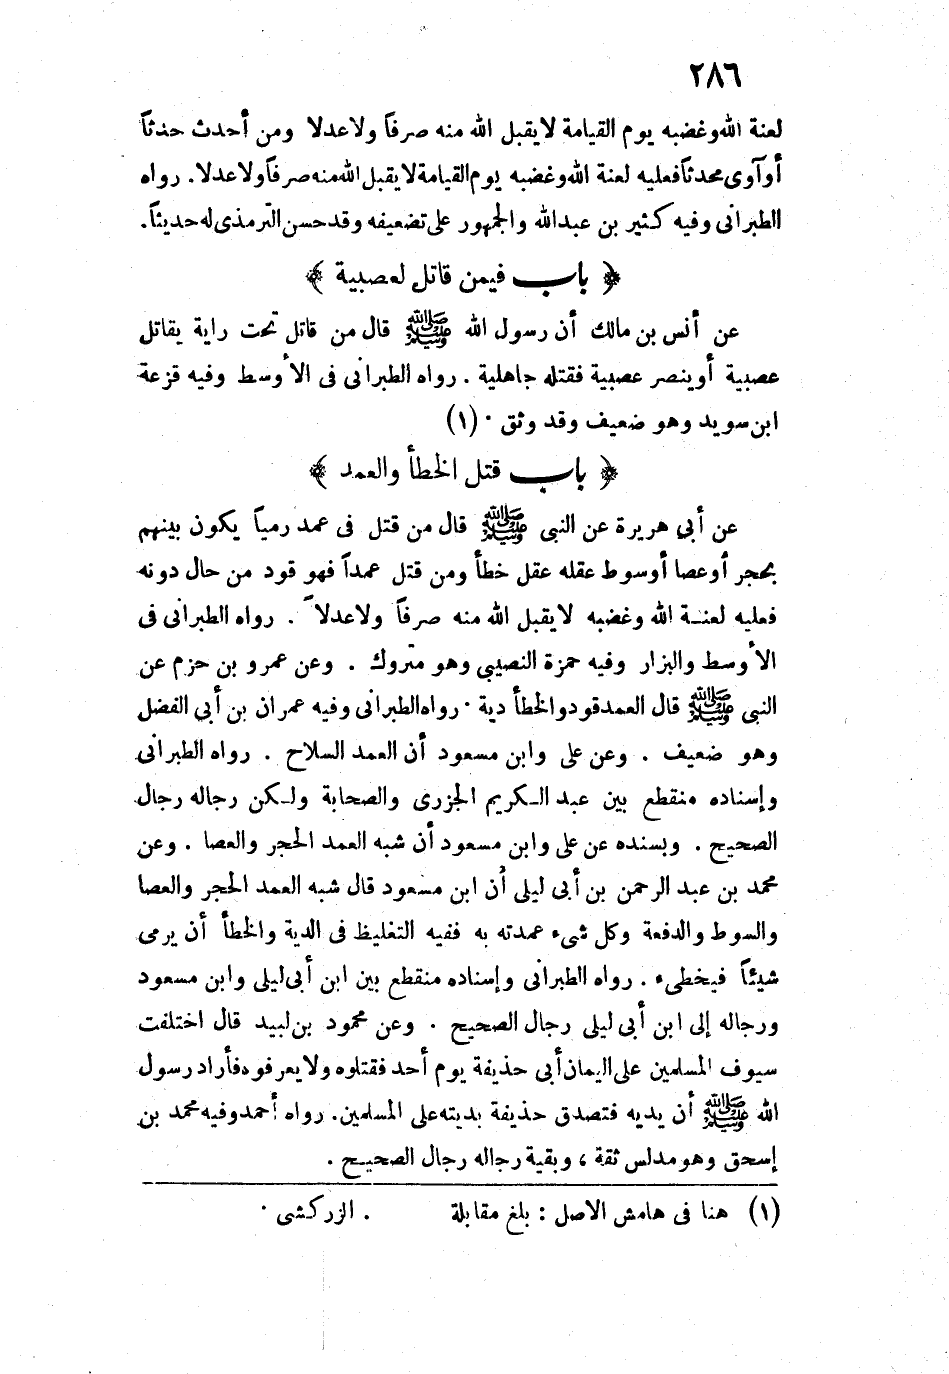 ٢٨٦
لعنة الله وغضبه يوم القيامة لا يقبل الله منه صرفاً ولا عدلا ومن أحدث حدثاً
أو آوى محدثاً فعليه لعنة الله وغضبه يوم القيامة لا يقبل الله منه صرفاً ولا عدلا. رواه
الطبرانى وفيه كثير بن عبدالله والجمهور على تضعيفه وقد حسن الترمذى له حديثاً.
﴿ باب فيمن قاتل لعصبية ﴾
عن أنس بن مالك أن رسول الله ﷺ قال من قاتل تحت راية يقاتل
عصبية أو ينصر عصبية فقتله جاهلية . رواه الطبرانى فى الأوسط وفيه قزعة
ابن سويد وهو ضعيف وقد وثق . (١)
﴿ باب قتل الخطأ والعمد ﴾
عن أبي هريرة عن النبى ﷺ قال من قتل فى عمد رمياً يكون بينهم
بحجر أو عصا أو سوط عقله عقل خطأ ومن قتل عمداً فهو قود من حال دونه
فعليه لعنة الله وغضبه لا يقبل الله منه صرفاً ولا عدلاً . رواه الطبرانى فى
الأوسط والبزار وفيه حمزة النصيبى وهو متروك . وعن عمرو بن حزم عن
النبى ﷺ قال العمد قود والخطأ دية . رواه الطبرانى وفيه عمران بن أبي الفضل
وهو ضعيف . وعن على وابن مسعود أن العمد السلاح . رواه الطبرانى
وإسناده منقطع بين عبد الكريم الجزرى والصحابة ولكن رجاله رجال
الصحيح . وبسنده عن على وابن مسعود أن شبه العمد الحجر والعصا . وعن
محمد بن عبد الرحمن بن أبى ليلى أن ابن مسعود قال شبه العمد الحجر والعصا
والسوط والدفعة وكل شىء عمدته به ففيه التغليظ فى الدية والخطأ أن يرمى
شيئاً فيخطىء . رواه الطبرانى وإسناده منقطع بين ابن أبى ليلى وابن مسعود
ورجاله إلى ابن أبى ليلى رجال الصحيح . وعن محمود بن لبيد قال اختلفت
سيوف المسلمين على اليمان أبى حذيفة يوم أحد فقتلوه ولا يعرفوه فأراد رسول
الله ﷺ أن يديه فتصدق حذيفة بديته على المسلمين. رواه أحمد وفيه محمد بن
إسحق وهو مدلس ثقة ، وبقية رجاله رجال الصحيح .
(١) هنا فى هامش الاصل : بلغ مقابلة . الزركشى .